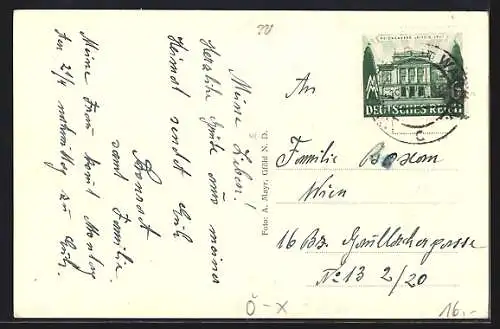 Meine Lieben!
Herzliche Grüße aus meiner
Heimat sendet Euch
Konrad
samt Familie.
Meine Frau kommt Montag
den 21/4 nachmittag zu Euch.
Foto: A. Mayr, Göstl N. D.
REICHSMESSE LEIPZIG 1941
DEUTSCHES REICH
C
An
Familie
Wien
16 Bz. Gaullachergasse
No 13 2/20
Ö-X
16,-